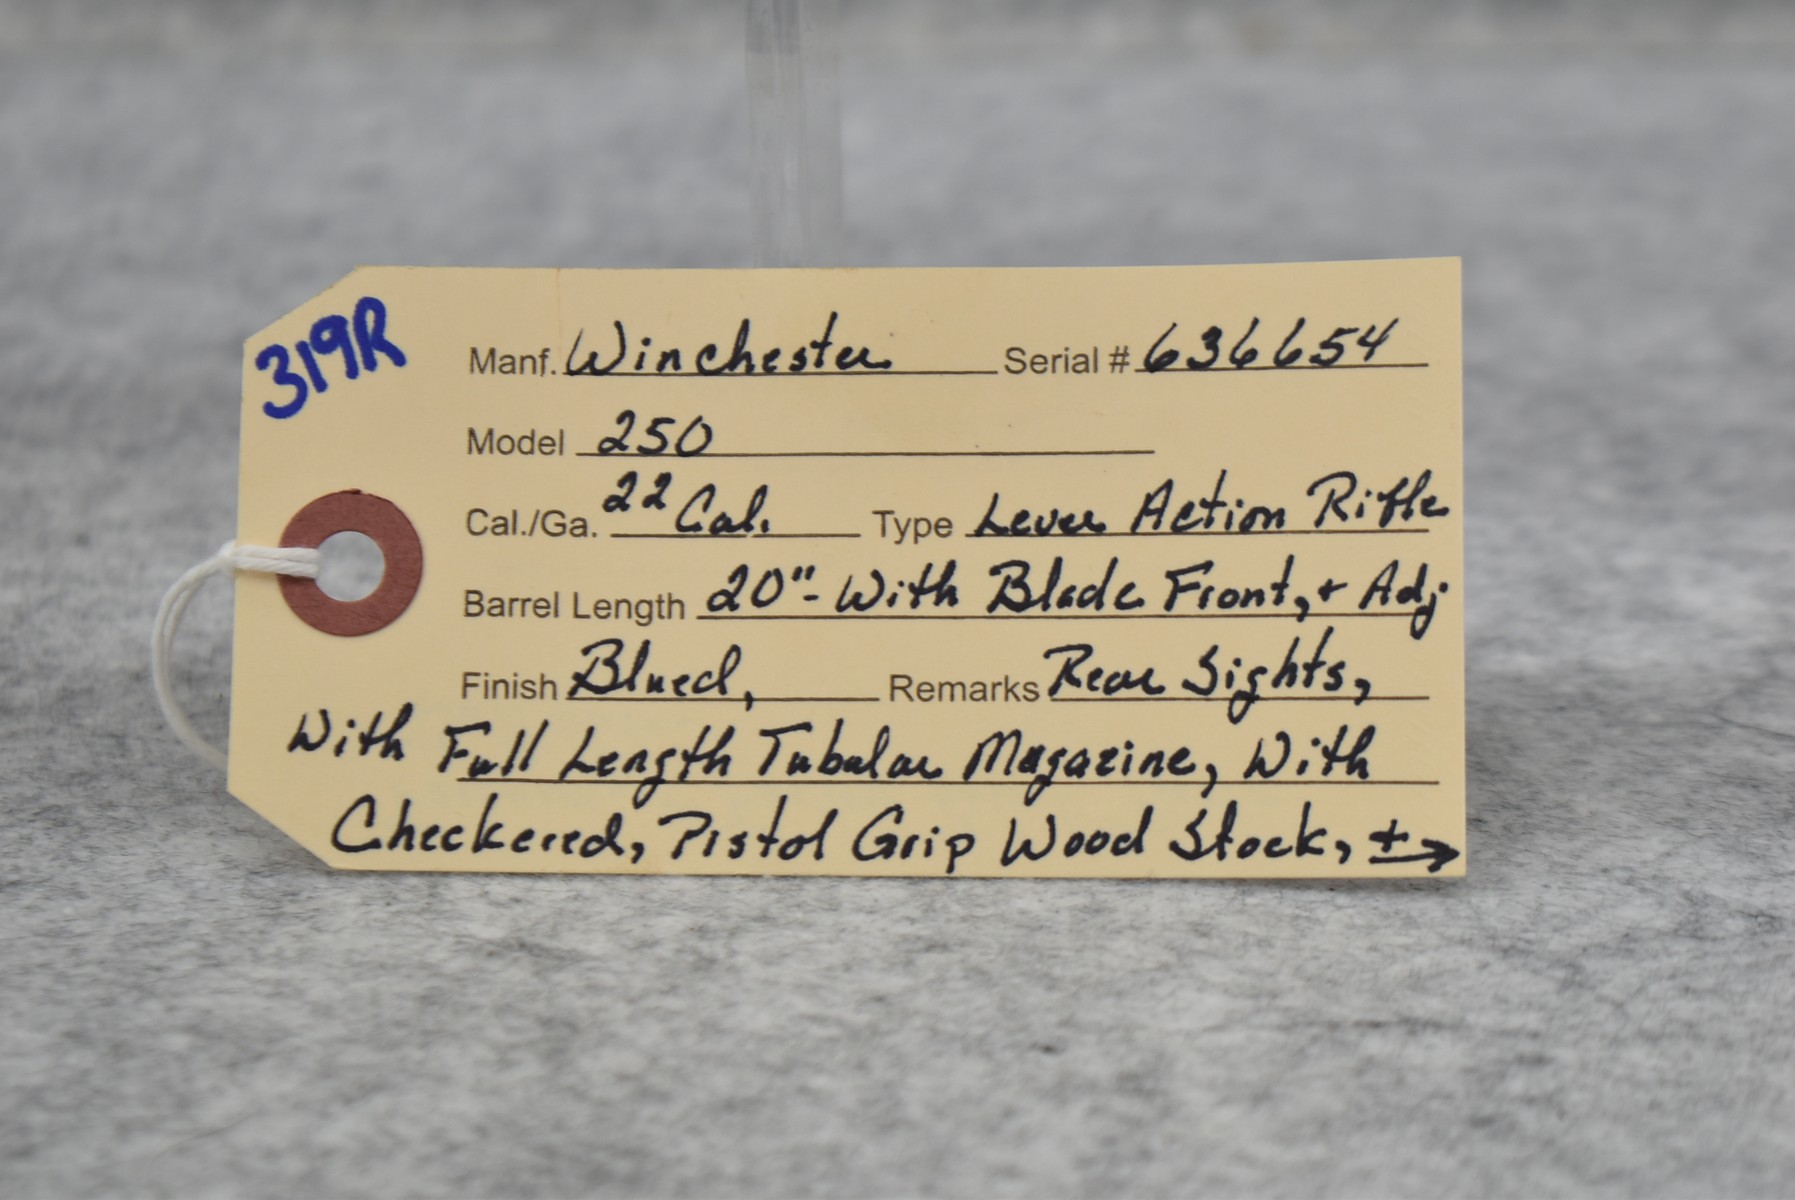 319R
Manf. Winchester Serial # 636654
Model 250
Cal./Ga. 22 Cal. Type Lever Action Rifle
Barrel Length 20" - With Blade Front, + Adj.
Finish Blued, Remarks Rear Sights,
With Full Length Tubular Magazine, With
Checkered, Pistol Grip Wood Stock, + →